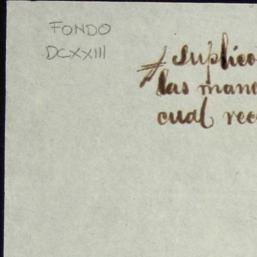 FONDO
DCXXIII
Suplico
las man
cual rec